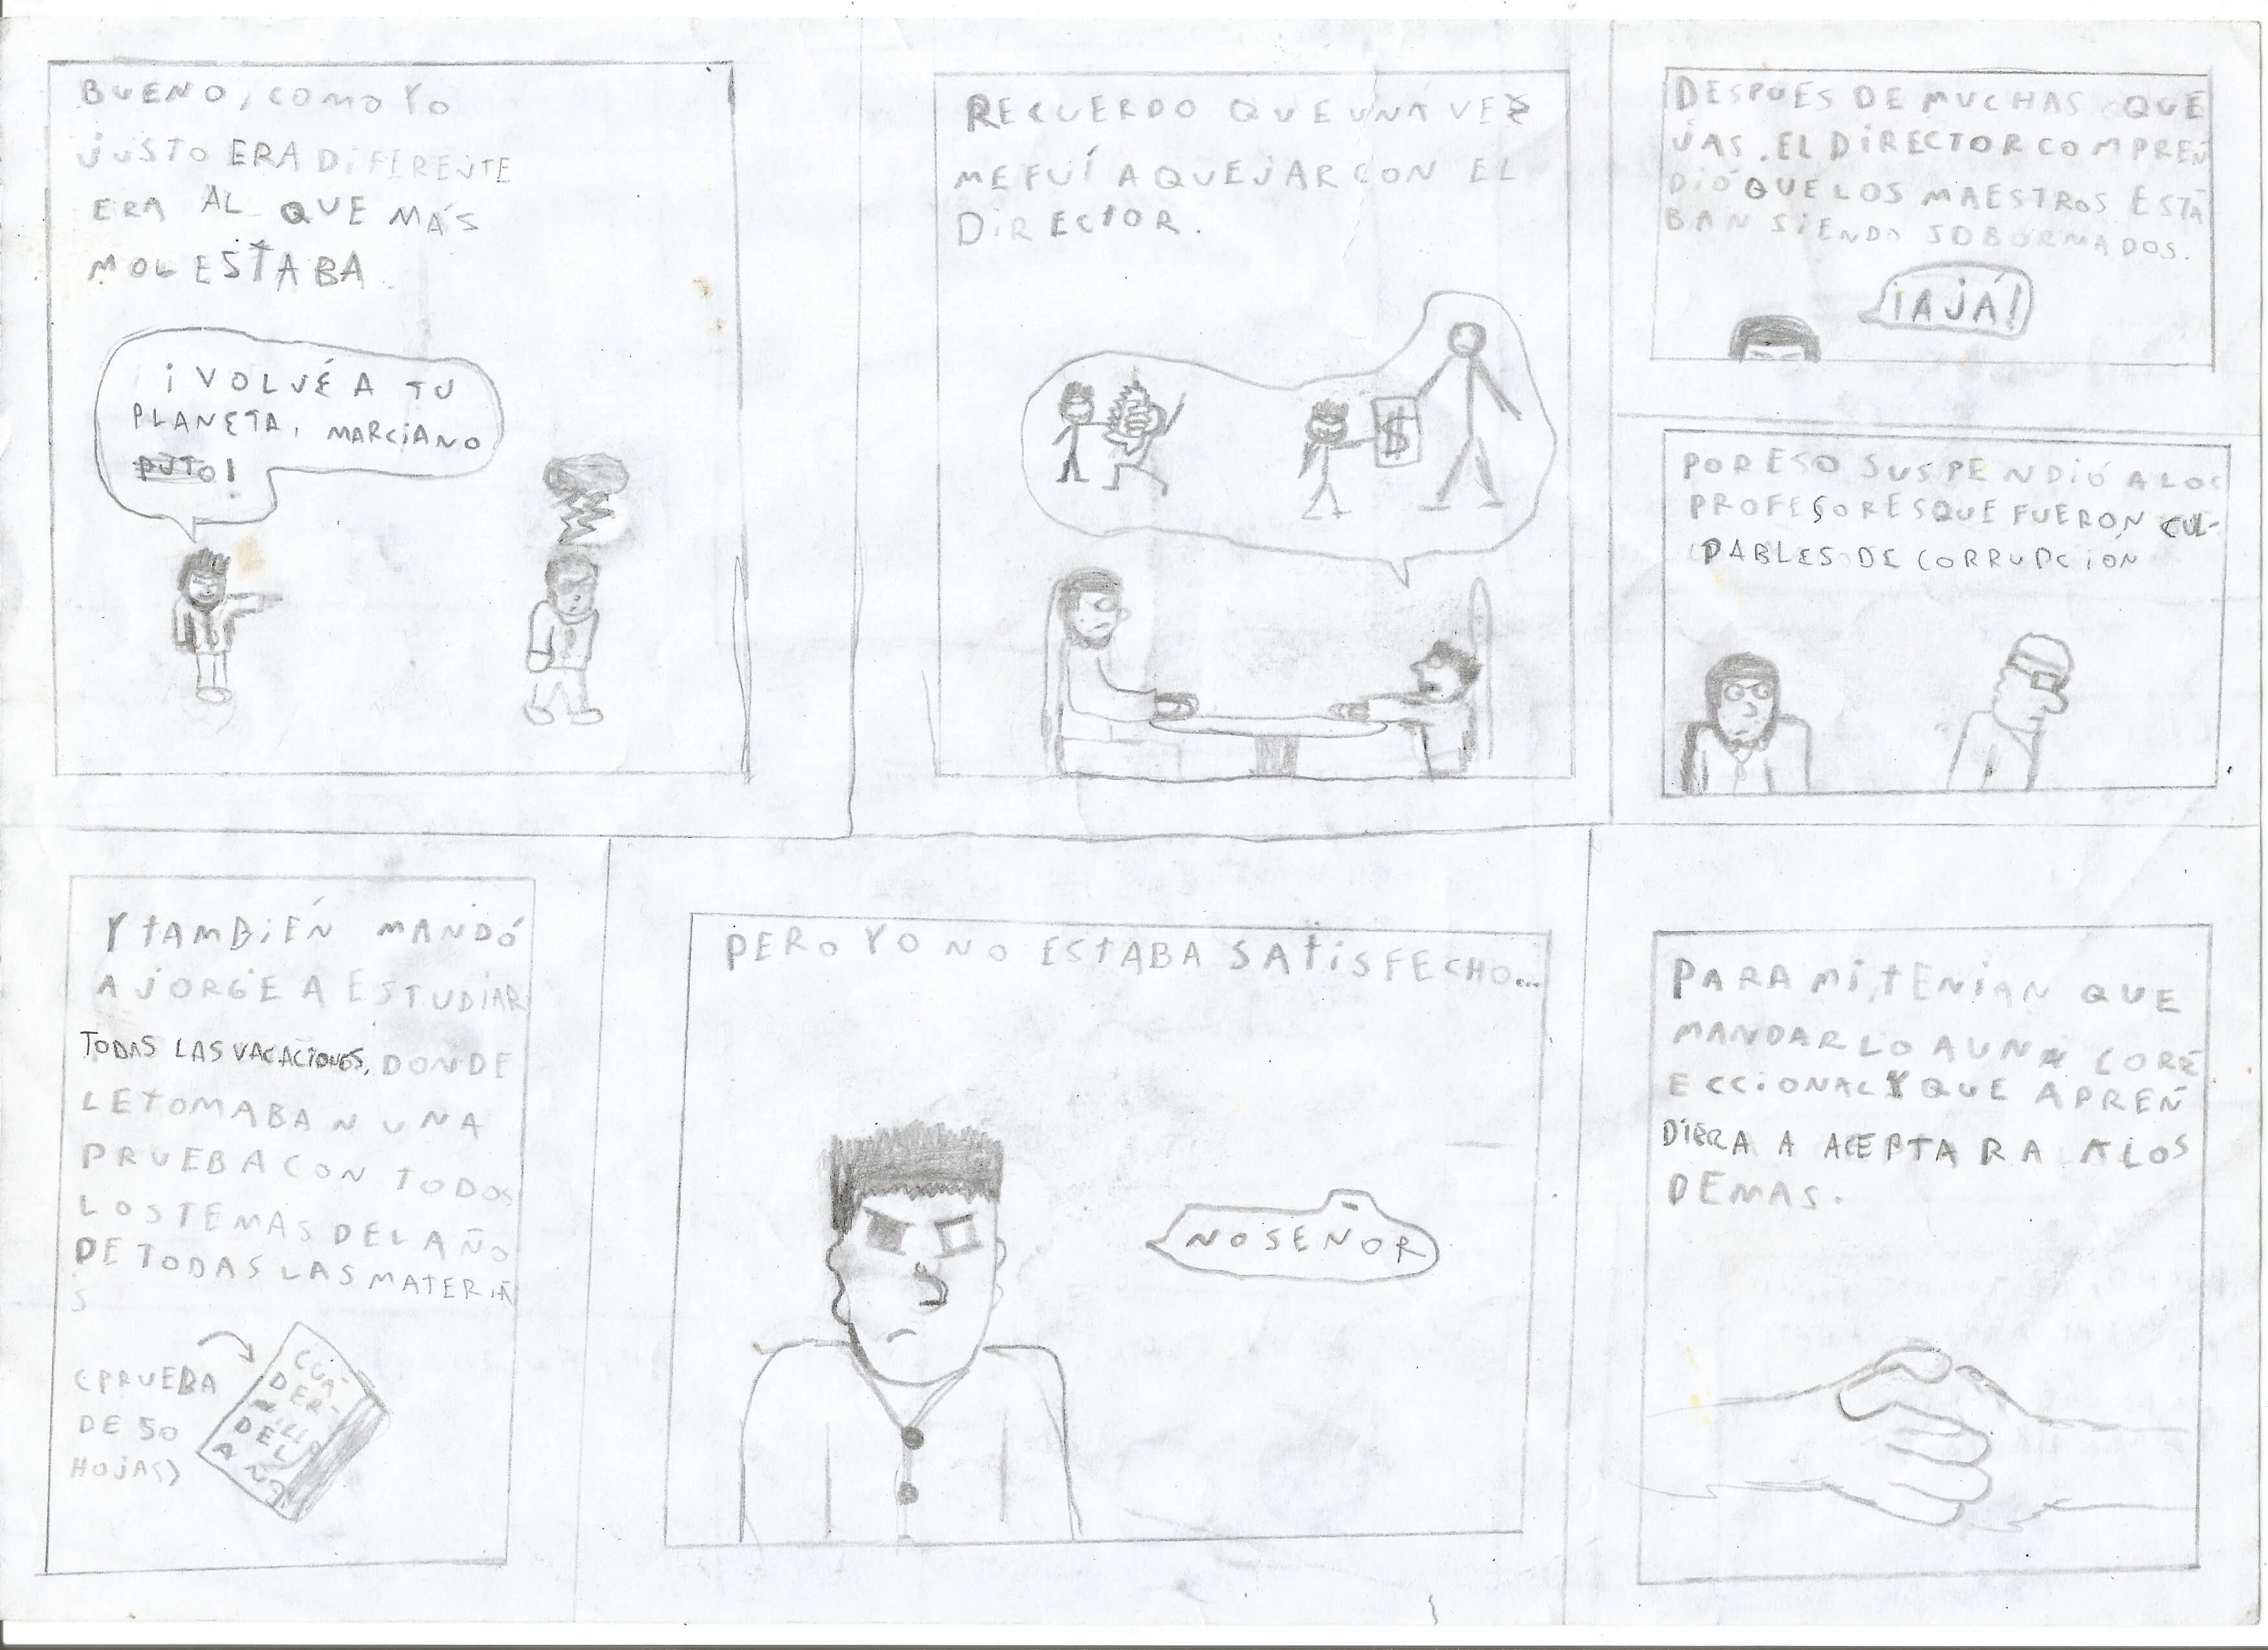 BUENO, COMO YO
JUSTO ERA DIFERENTE
ERA AL QUE MÁS
MOLESTABA.
¡VOLVÉ A TU
PLANETA, MARCIANO
PUTO!
RECUERDO QUE UNA VEZ
ME FUÍ A QUEJAR CON EL
DIRECTOR.
$
DESPUES DE MUCHAS QUE
JAS. EL DIRECTOR COMPREN
DIÓ QUE LOS MAESTROS ESTA
BAN SIENDO SOBORMADOS.
¡AJÁ!
POR ESO SUSPENDIÓ A LOS
PROFESORES QUE FUERON CUL-
PABLES DE CORRUPCION
Y TAMBIÉN MANDÓ
A JORGE A ESTUDIAR
TODAS LAS VACACIONES, DONDE
LE TOMABAN UNA
PRUEBA CON TODOS
LOS TEMAS DEL AÑO
DE TODAS LAS MATERIA
S
(PRUEBA
DE 50
HOJAS)
CUA-
DER-
NILLO
DEL
AÑO
PERO YO NO ESTABA SATISFECHO...
NO SEÑOR
PARA MI, TENIAN QUE
MANDARLO A UNA CORR
ECCIONAL Y QUE APREN
DIERA A ACEPTAR A A LOS
DEMAS.